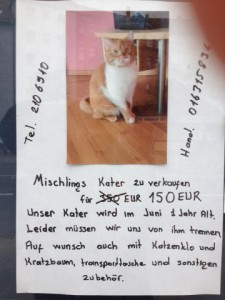 Tel. 2106910
Handl. 0163758
Mischlings Kater zu verkaufen
für 350 EUR 150 EUR
Unser Kater wird im Juni 1 Jahr Alt.
Leider müssen wir uns von ihm trennen
Auf wunsch auch mit Katzenklo und
Kratzbaum, transporttasche und sonstigen
zubehör.